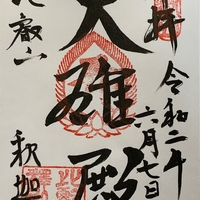 拝
令和二年
六月七日
大雄殿
比叡山
釈迦